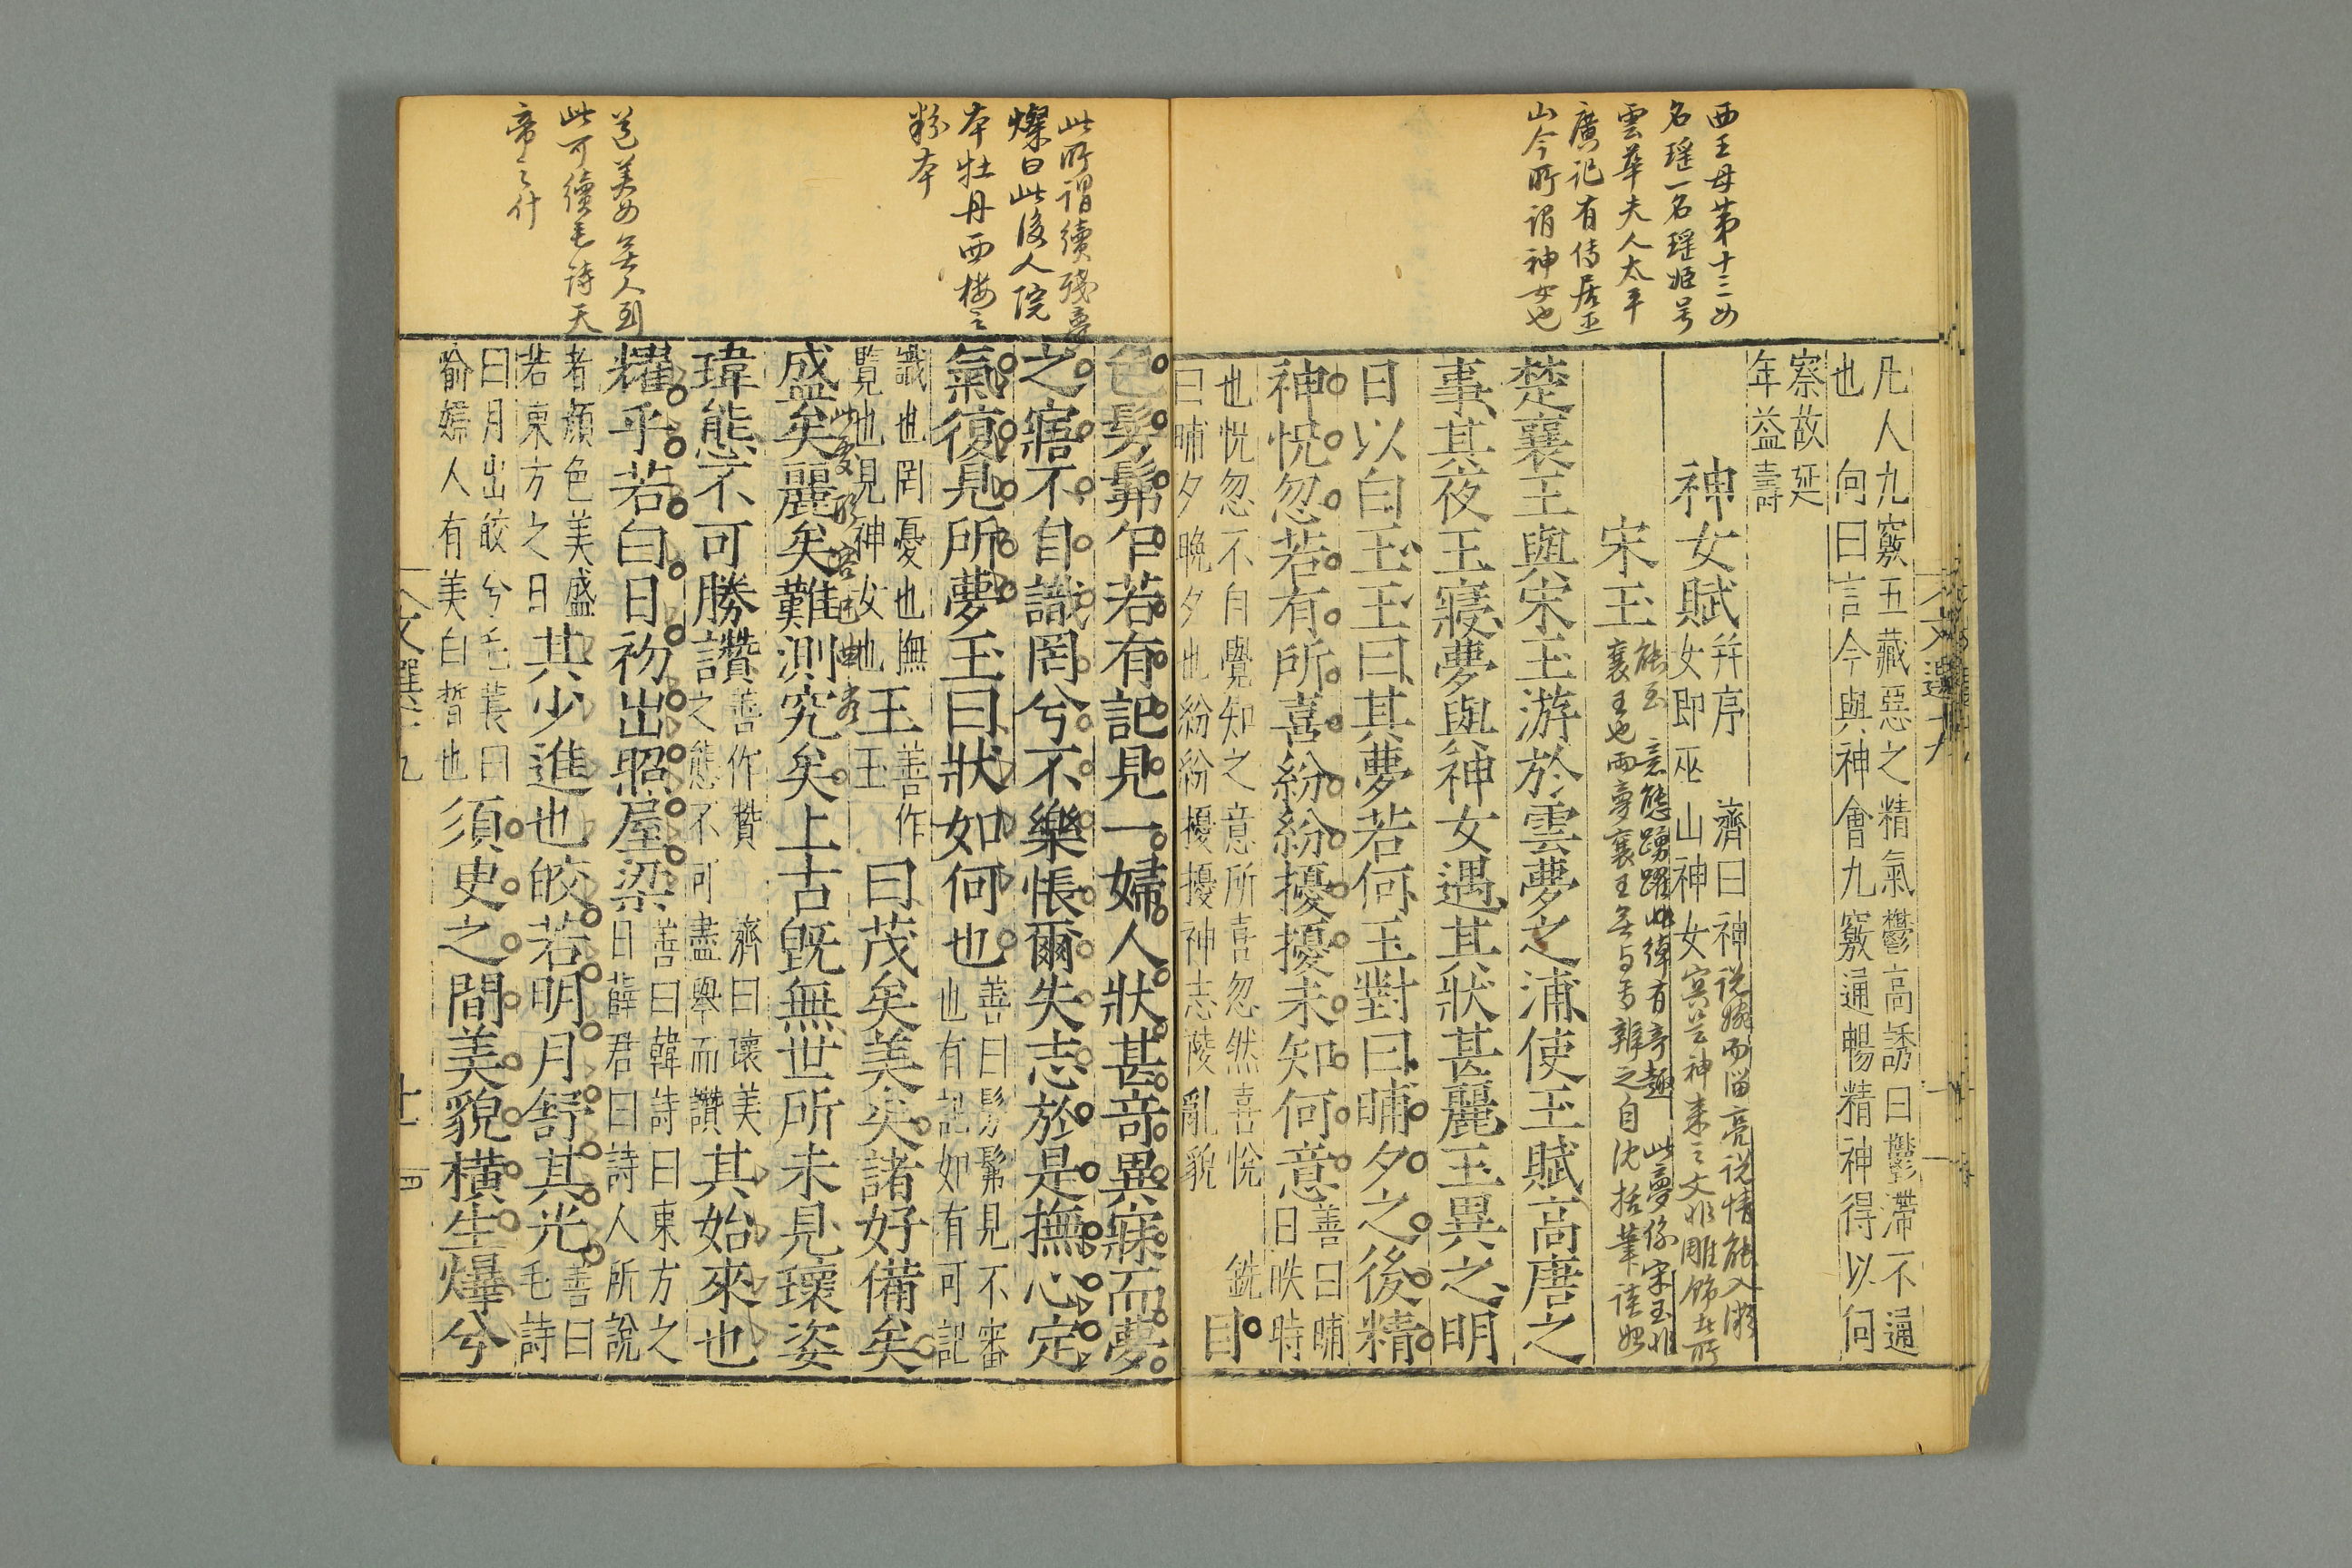 西王母第十三女
名瑶一名瑶姬号
雲華夫人太平
廣記有傳居巫
山今所謂神女也
凡人九竅五藏惡之精氣鬱高誘曰鬱滯不通
也　向曰言今與神會九竅通暢精神得以何
察故延
年益壽
神女賦
并序　濟曰神
女即巫山神女
宋玉
楚襄王與宋玉游於雲夢之浦使玉賦高唐之
事其夜王寢夢與神女遇其狀甚麗王異之明
日以白玉玉曰其夢若何王對曰晡夕之後精
神怳忽若有所喜紛紛擾擾未知何意
善曰晡
日昳時
也怳忽不自覺知之意所喜忽然喜悅　銑
曰晡夕晚夕也紛紛擾擾神志陵亂貌
目
此所謂續殘夢
燦曰此後人院
本牡丹西樓之
粉本
色髣髴乍若有記見一婦人狀甚奇異寐而夢
之寤不自識罔兮不樂悵爾失志於是撫心定
氣復見所夢王曰狀如何也
善曰髣髴見不審
也有記如有可記
識也罔憂也撫
覽也見神女也
玉
善作
王
曰茂矣美矣諸好備矣
盛矣麗矣難測究矣上古旣無世所未見瓌姿
瑋態不可勝讚
善作贊　濟曰瓌美
之態不可盡舉而讚
其始來也
耀乎若白日初出照屋梁
善曰韓詩曰東方之
日薛君曰詩人所說
者顔色美盛
若東方之日
其少進也皎若明月舒其光
善曰
毛詩
曰月出皎兮毛萇曰
喻婦人有美白晳也
須史之間美貌橫生燁兮
道美女無人到
此可續毛诗天
帝之什
文選十九
十一